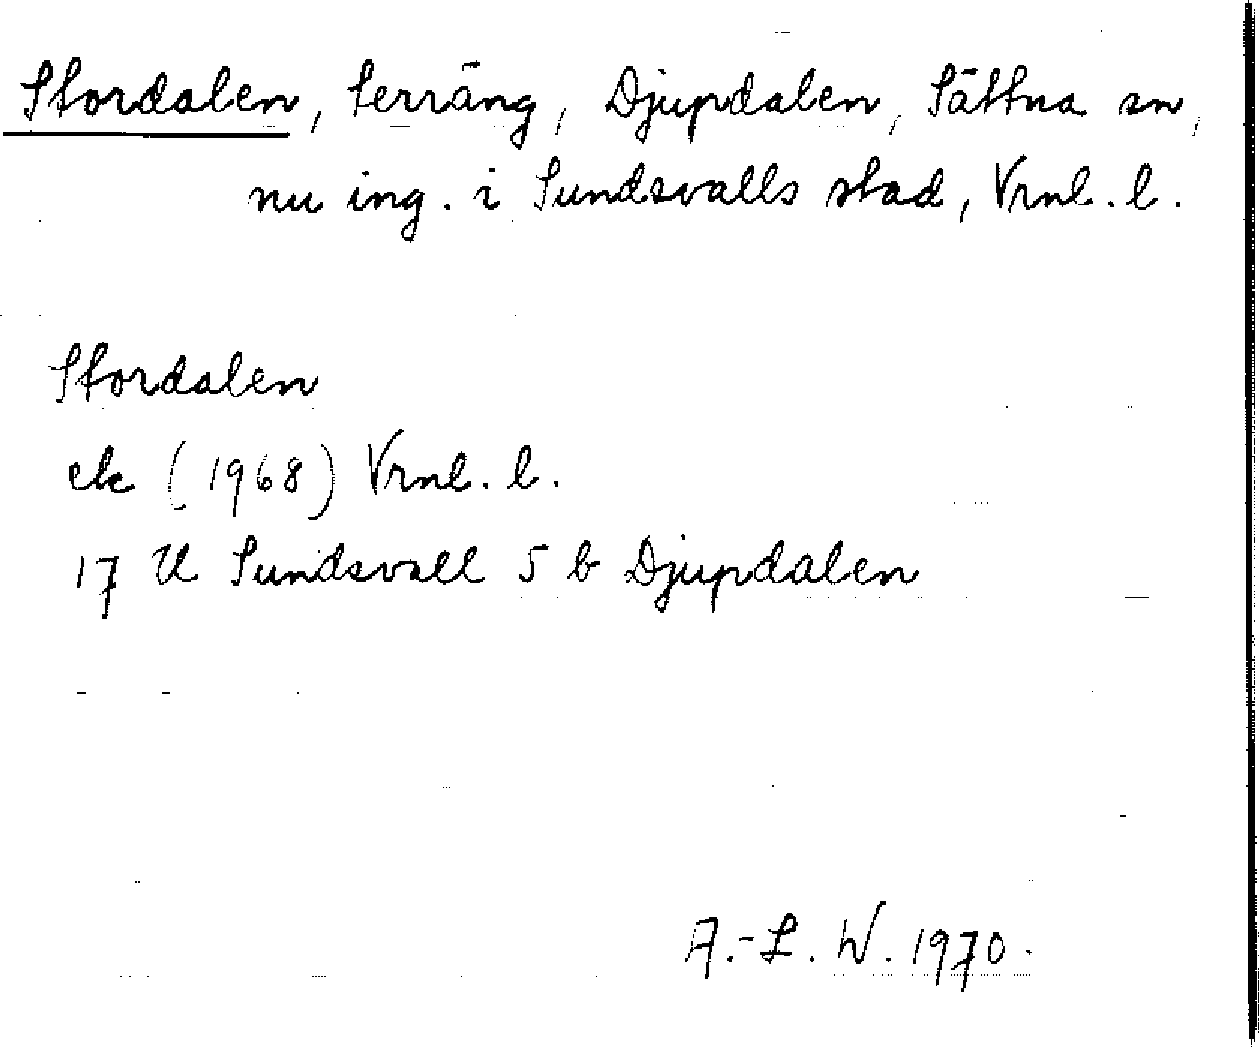 Stordalen, terräng, Djupdalen, Sättna sn,
nu ing. i Sundsvalls stad, Vrnl. l.
Stordalen
ek (1968) Vrnl. l.
17 H Sundsvall 5 b Djupdalen
A.-L. W. 1970.